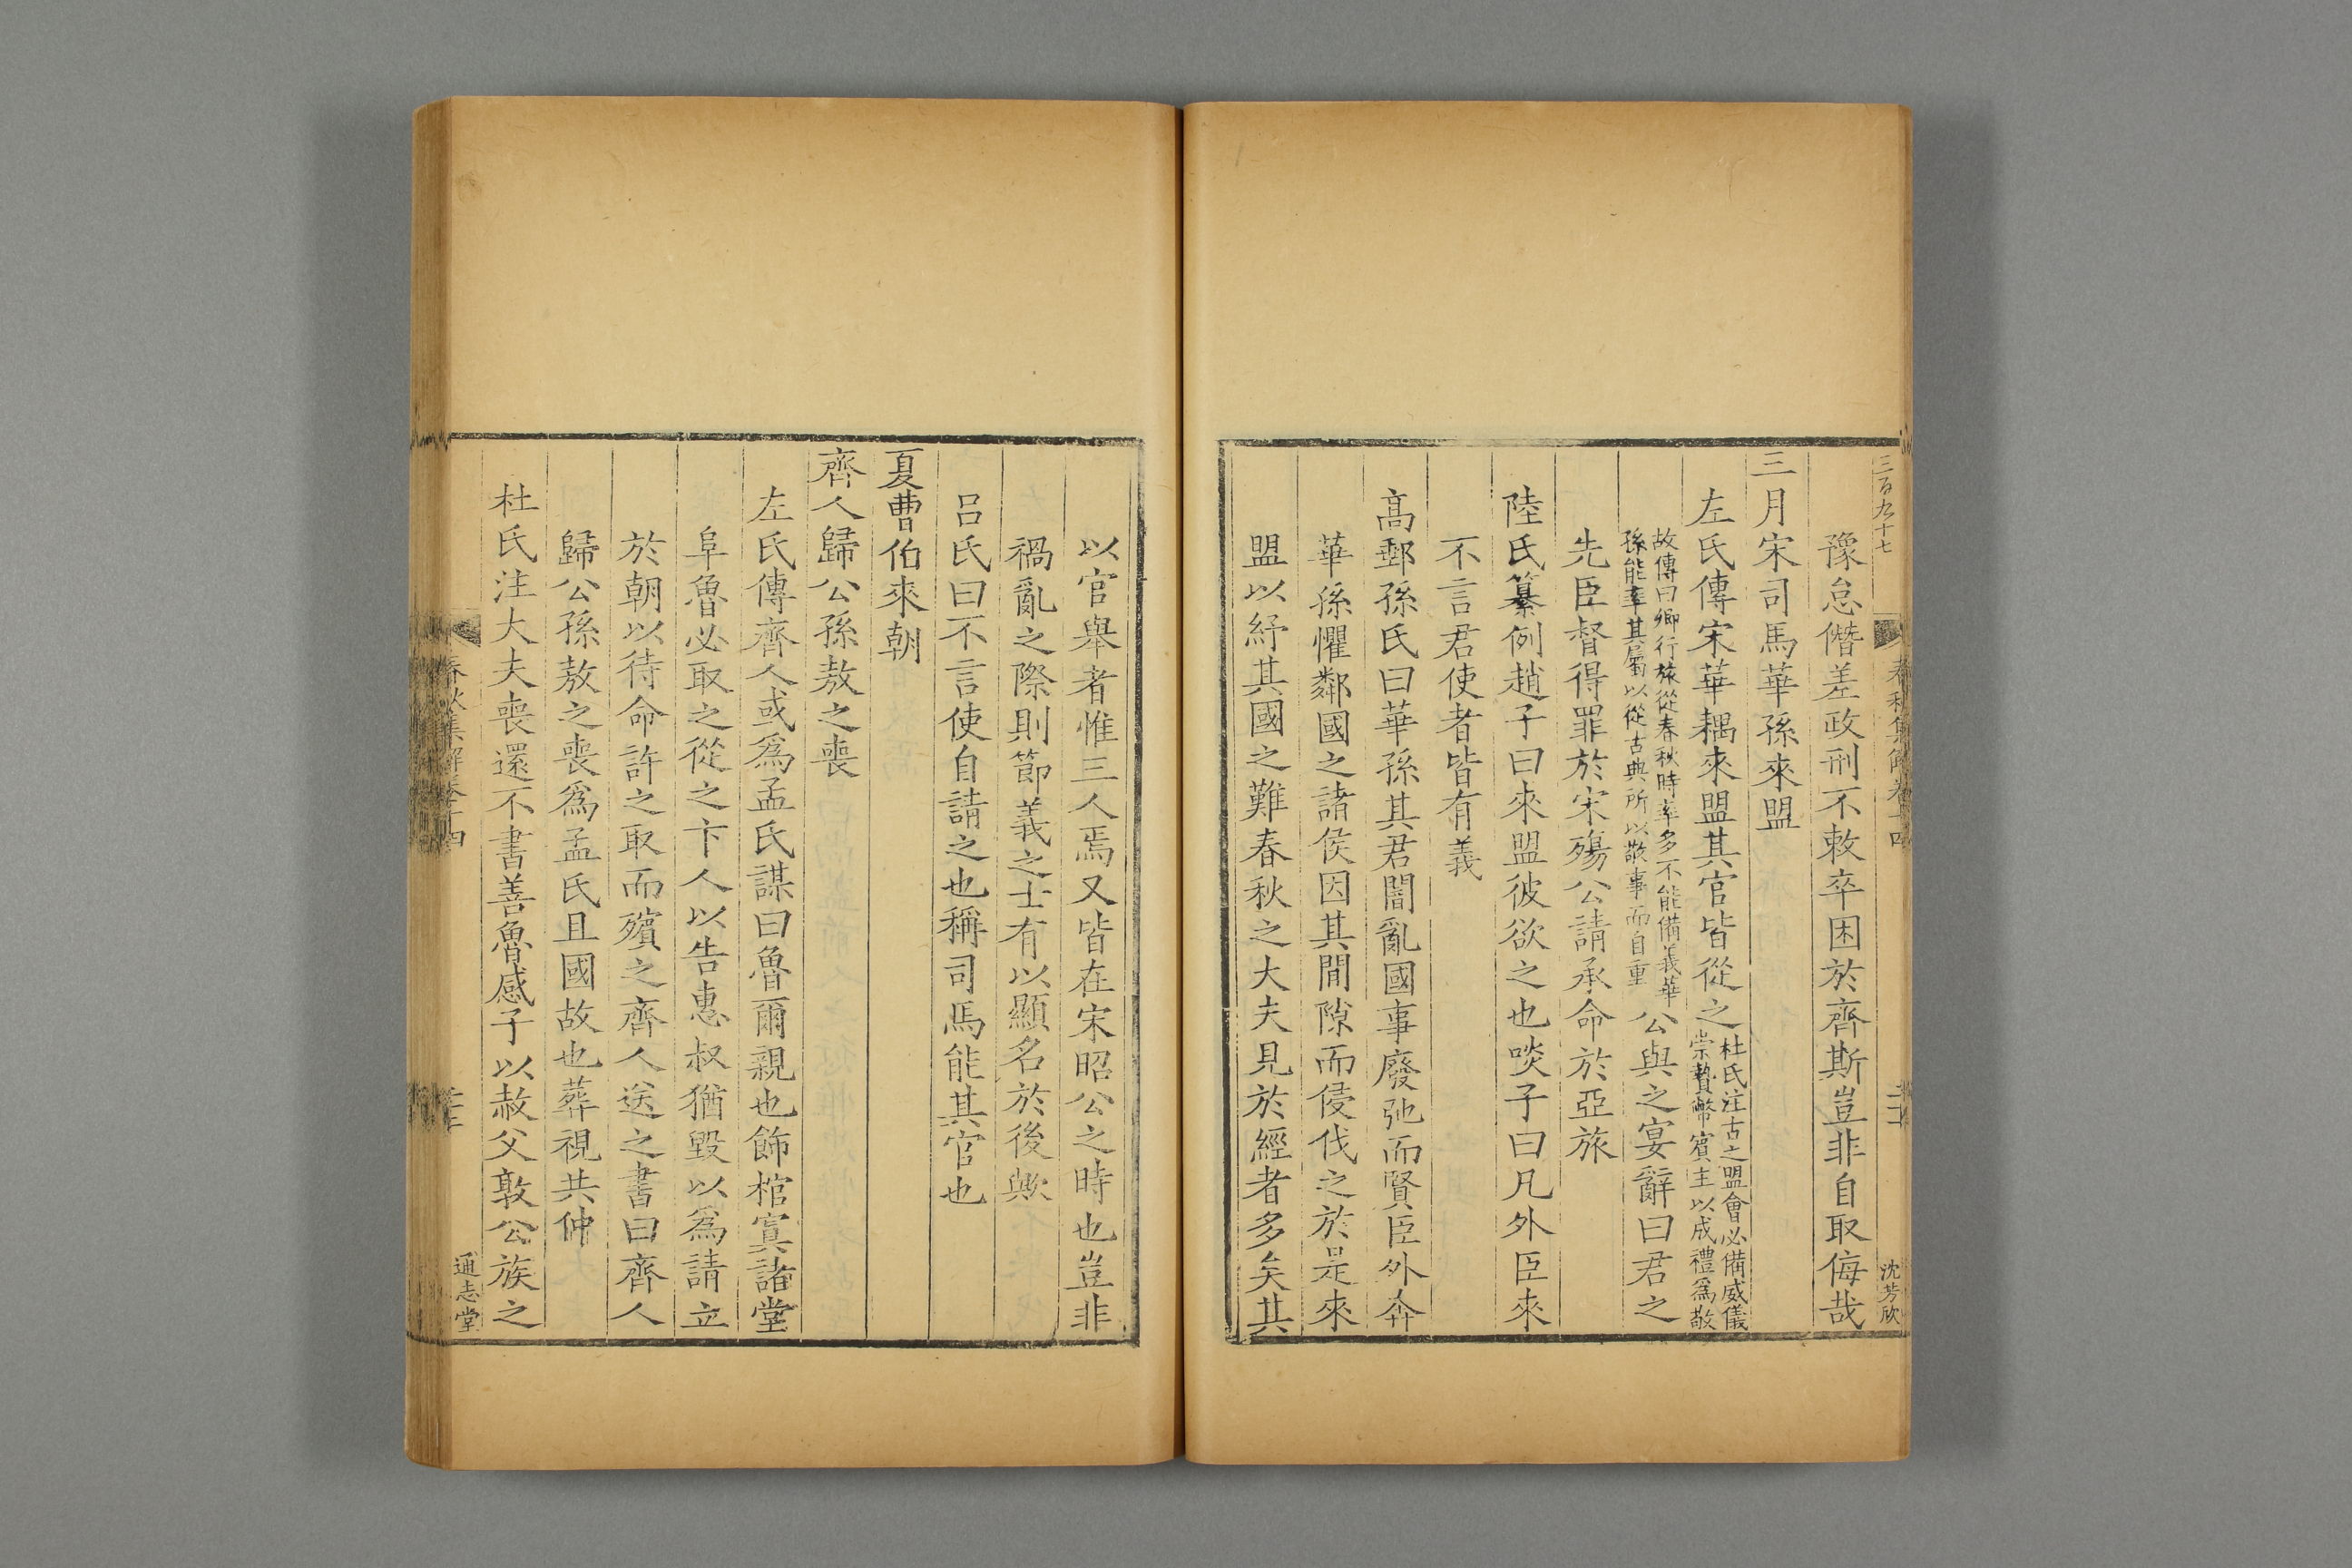 三百九十七
春秋集解卷十四
沈芳欣
豫怠僭差政刑不敕卒困於齊斯豈非自取侮哉
三月宋司馬華孫來盟
左氏傳宋華耦來盟其官皆從之杜氏注古之盟會必備威儀
崇贄幣賓主以成禮為敬
故傳曰卿行旅從春秋時率多不能備義華
孫能率其屬以從古典所以敬事而自重
公與之宴辭曰君之
先臣督得罪於宋殤公請承命於亞旅
陸氏纂例趙子曰來盟彼欲之也啖子曰凡外臣來
不言君使者皆有義
高郵孫氏曰華孫其君闇亂國事廢弛而賢臣外奔
華孫懼鄰國之諸侯因其間隙而侵伐之於是來
盟以紓其國之難春秋之大夫見於經者多矣其
以官舉者惟三人焉又皆在宋昭公之時也豈非
禍亂之際則節義之士有以顯名於後歟
呂氏曰不言使自請之也稱司馬能其官也
夏曹伯來朝
齊人歸公孫敖之喪
左氏傳齊人或爲孟氏謀曰魯爾親也飾棺寘諸堂
阜魯必取之從之卞人以告惠叔猶毀以爲請立
於朝以待命許之取而殯之齊人送之書曰齊人
歸公孫敖之喪爲孟氏且國故也葬視共仲
杜氏注大夫喪還不書善魯感子以赦父敦公族之
春秋集解卷十四
通志堂